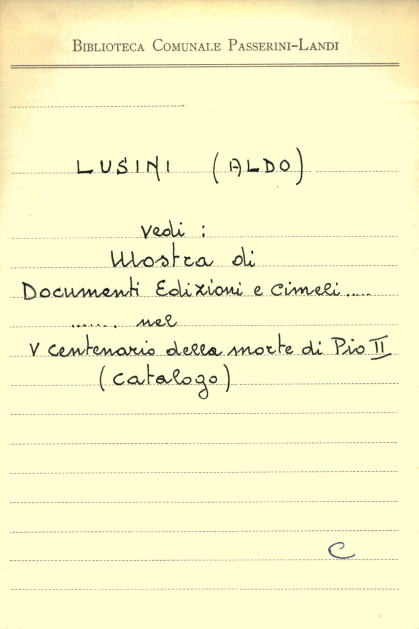 BIBLIOTECA COMUNALE PASSERINI-LANDI
LUSINI (ALDO)
vedi :
Mostra di
Documenti Edizioni e cimeli.....
....... nel
V centenario della morte di Pio II
(catalogo)
C